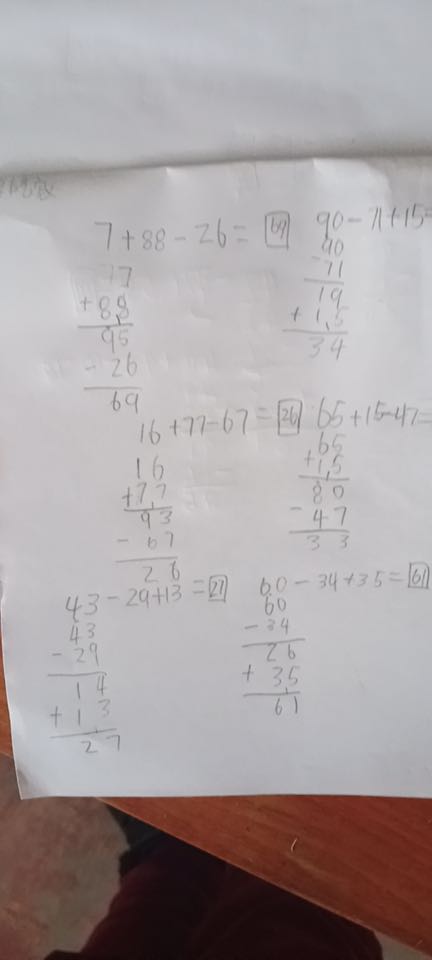 7+88-26=69
77
+88
95
-26
69
90-71+15=
90
-71
19
+15
34
16+77-67=26
16
+77
93
-67
26
65+15-47=
65
+15
80
-47
33
43-29+13=27
43
-29
14
+13
27
60-34+35=61
60
-34
26
+35
61